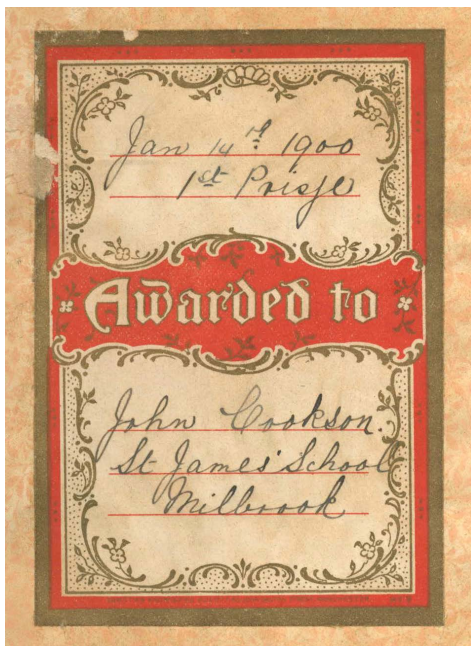 Jan 14th 1900
1st Prisje
Awarded to
John Cookson.
St James' School
Milbrook